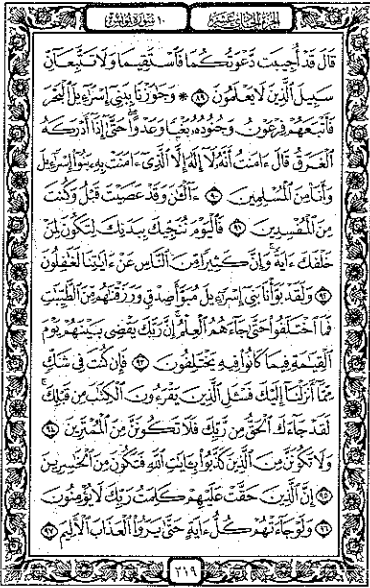 الجزء الحادي عشر
١٠ سورة يونس
قَالَ قَدْ أُجِيبَت دَّعْوَتُكُمَا فَاسْتَقِيمَا وَلَا تَتَّبِعَآنِّ
سَبِيلَ الَّذِينَ لَا يَعْلَمُونَ ٨٩ ۞ وَجَوَزْنَا بِبَنِي إِسْرَءِيلَ الْبَحْرَ
فَأَتْبَعَهُمْ فِرْعَوْنُ وَجُنُودُهُ بَغْيًا وَعَدْوًا حَتَّى إِذَا أَدْرَكَهُ
الْغَرَقُ قَالَ ءَامَنتُ أَنَّهُ لَا إِلَهَ إِلَّا الَّذِي ءَامَنَتْ بِهِ بَنُوا إِسْرَءِيلَ
وَأَنَا مِنَ الْمُسْلِمِينَ ٩٠ ءَآلْـَٔنَ وَقَدْ عَصَيْتَ قَبْلُ وَكُنتَ
مِنَ الْمُفْسِدِينَ ٩١ فَالْيَوْمَ نُنَجِّيكَ بِبَدَنِكَ لِتَكُونَ لِمَنْ
خَلْفَكَ ءَايَةً وَإِنَّ كَثِيرًا مِّنَ النَّاسِ عَنْ ءَايَتِنَا لَغَفِلُونَ
٩٢ وَلَقَدْ بَوَّأْنَا بَنِي إِسْرَءِيلَ مُبَوَّأَ صِدْقٍ وَرَزَقْنَهُم مِّنَ الطَّيِّبَتِ
فَمَا اخْتَلَفُوا حَتَّى جَاءَهُمُ الْعِلْمُ إِنَّ رَبَّكَ يَقْضِي بَيْنَهُمْ يَوْمَ
الْقِيَمَةِ فِيمَا كَانُوا فِيهِ يَخْتَلِفُونَ ٩٣ فَإِن كُنتَ فِي شَكٍّ
مِّمَّا أَنزَلْنَا إِلَيْكَ فَسْـَٔلِ الَّذِينَ يَقْرَءُونَ الْكِتَبَ مِن قَبْلِكَ
لَقَدْ جَاءَكَ الْحَقُّ مِن رَّبِّكَ فَلَا تَكُونَنَّ مِنَ الْمُمْتَرِينَ ٩٤
وَلَا تَكُونَنَّ مِنَ الَّذِينَ كَذَّبُوا بِـَٔايَتِ اللَّهِ فَتَكُونَ مِنَ الْخَسِرِينَ
٩٥ إِنَّ الَّذِينَ حَقَّتْ عَلَيْهِمْ كَلِمَتُ رَبِّكَ لَا يُؤْمِنُونَ
٩٦ وَلَوْ جَاءَتْهُمْ كُلُّ ءَايَةٍ حَتَّى يَرَوُا الْعَذَابَ الْأَلِيمَ ٩٧
٢١٩